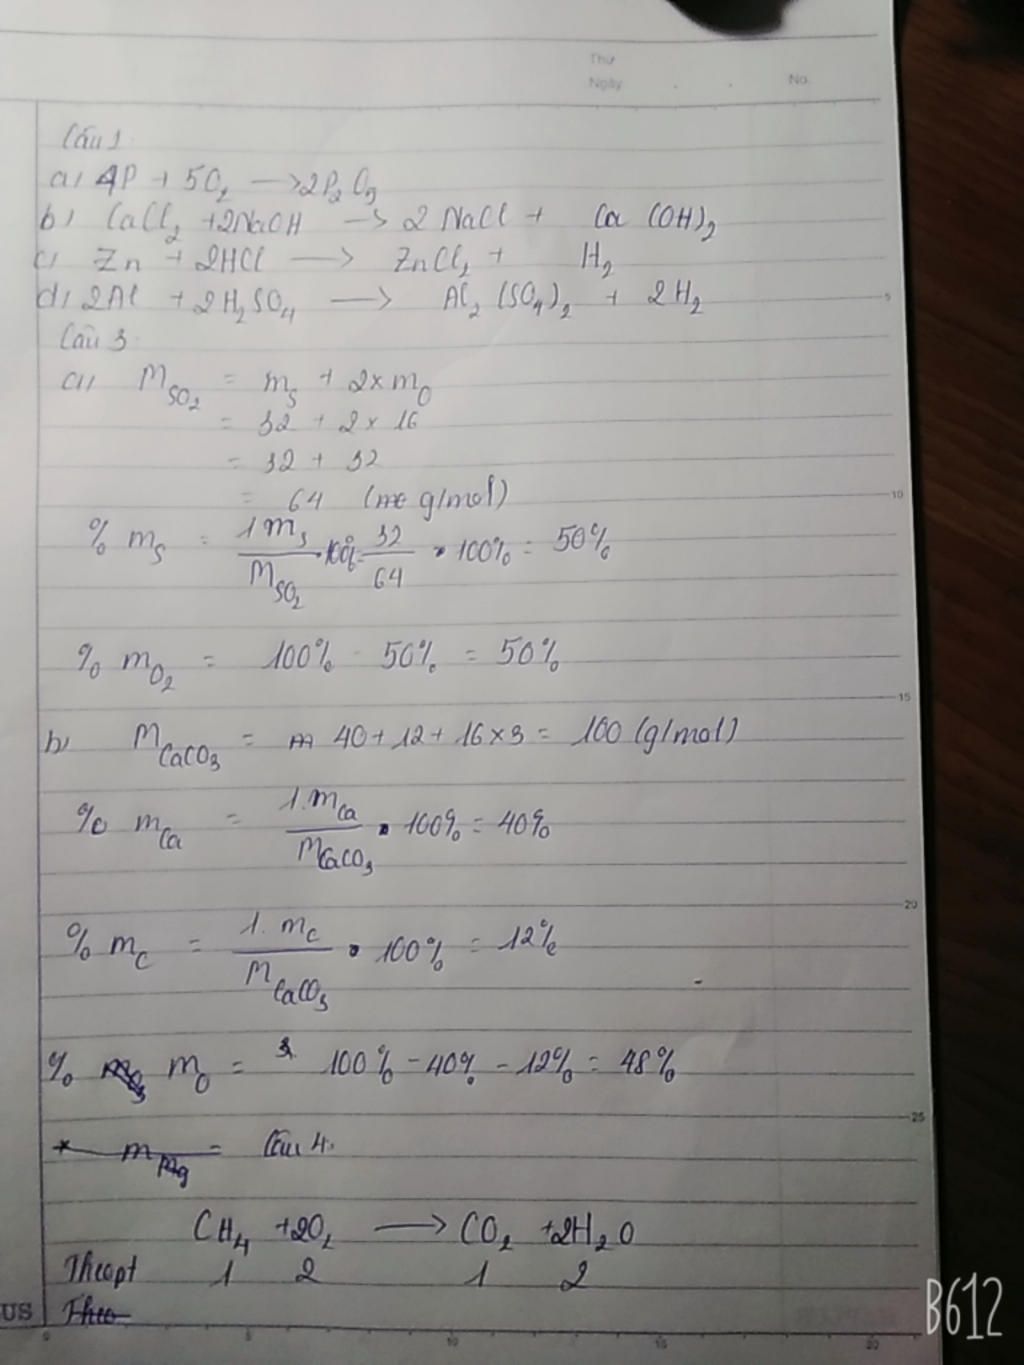 Thứ
Ngày . . No.
Câu 1
a) 4P + 5O₂ → 2P₂O₅
b) CaCl₂ + 2NaOH → 2 NaCl + Ca (OH)₂
c) Zn + 2HCl → ZnCl₂ + H₂
d) 2Al + 2H₂SO₄ → Al₂ (SO₄)₂ + 2H₂
5
Câu 3
a) M_SO₂ = m_S + 2 x m_O
= 32 + 2 x 16
= 32 + 32
= 64 (g/mol)
10
% m_S = 1 m_S / M_SO₂ . 100% = 32/64 . 100% = 50%
% m_O₂ = 100% - 50% = 50%
15
b) M_CaCO₃ = 40 + 12 + 16 x 3 = 100 (g/mol)
% m_Ca = 1. m_Ca / M_CaCO₃ . 100% = 40%
20
% m_C = 1. m_C / M_CaCO₃ . 100% = 12%
% m_O = 100% - 40% - 12% = 48%
25
* m_Mg = Câu 4.
CH₄ + 2O₂ → CO₂ + 2H₂O
Theo pt 1 2 1 2
US Theo
0 5 10 15 20
B612